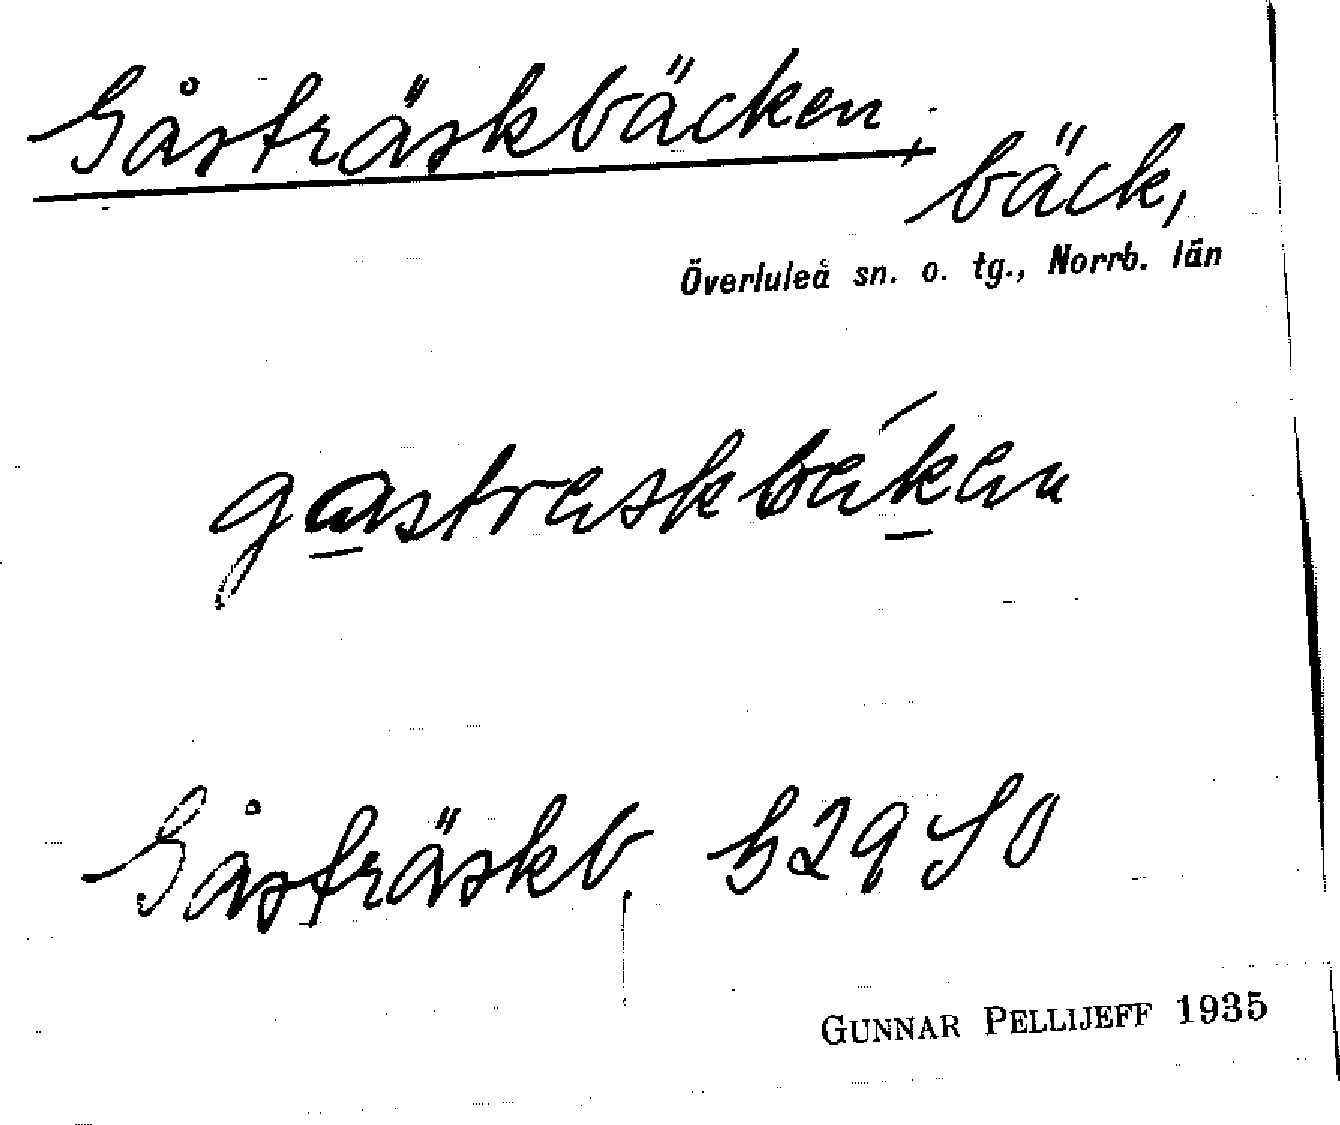 Gåsträskbäcken,
bäck,
Överluleå sn. o. tg., Norrb. län
gastraskbákan
Gåsträskb.
GUNNAR PELLIJEFF 1935